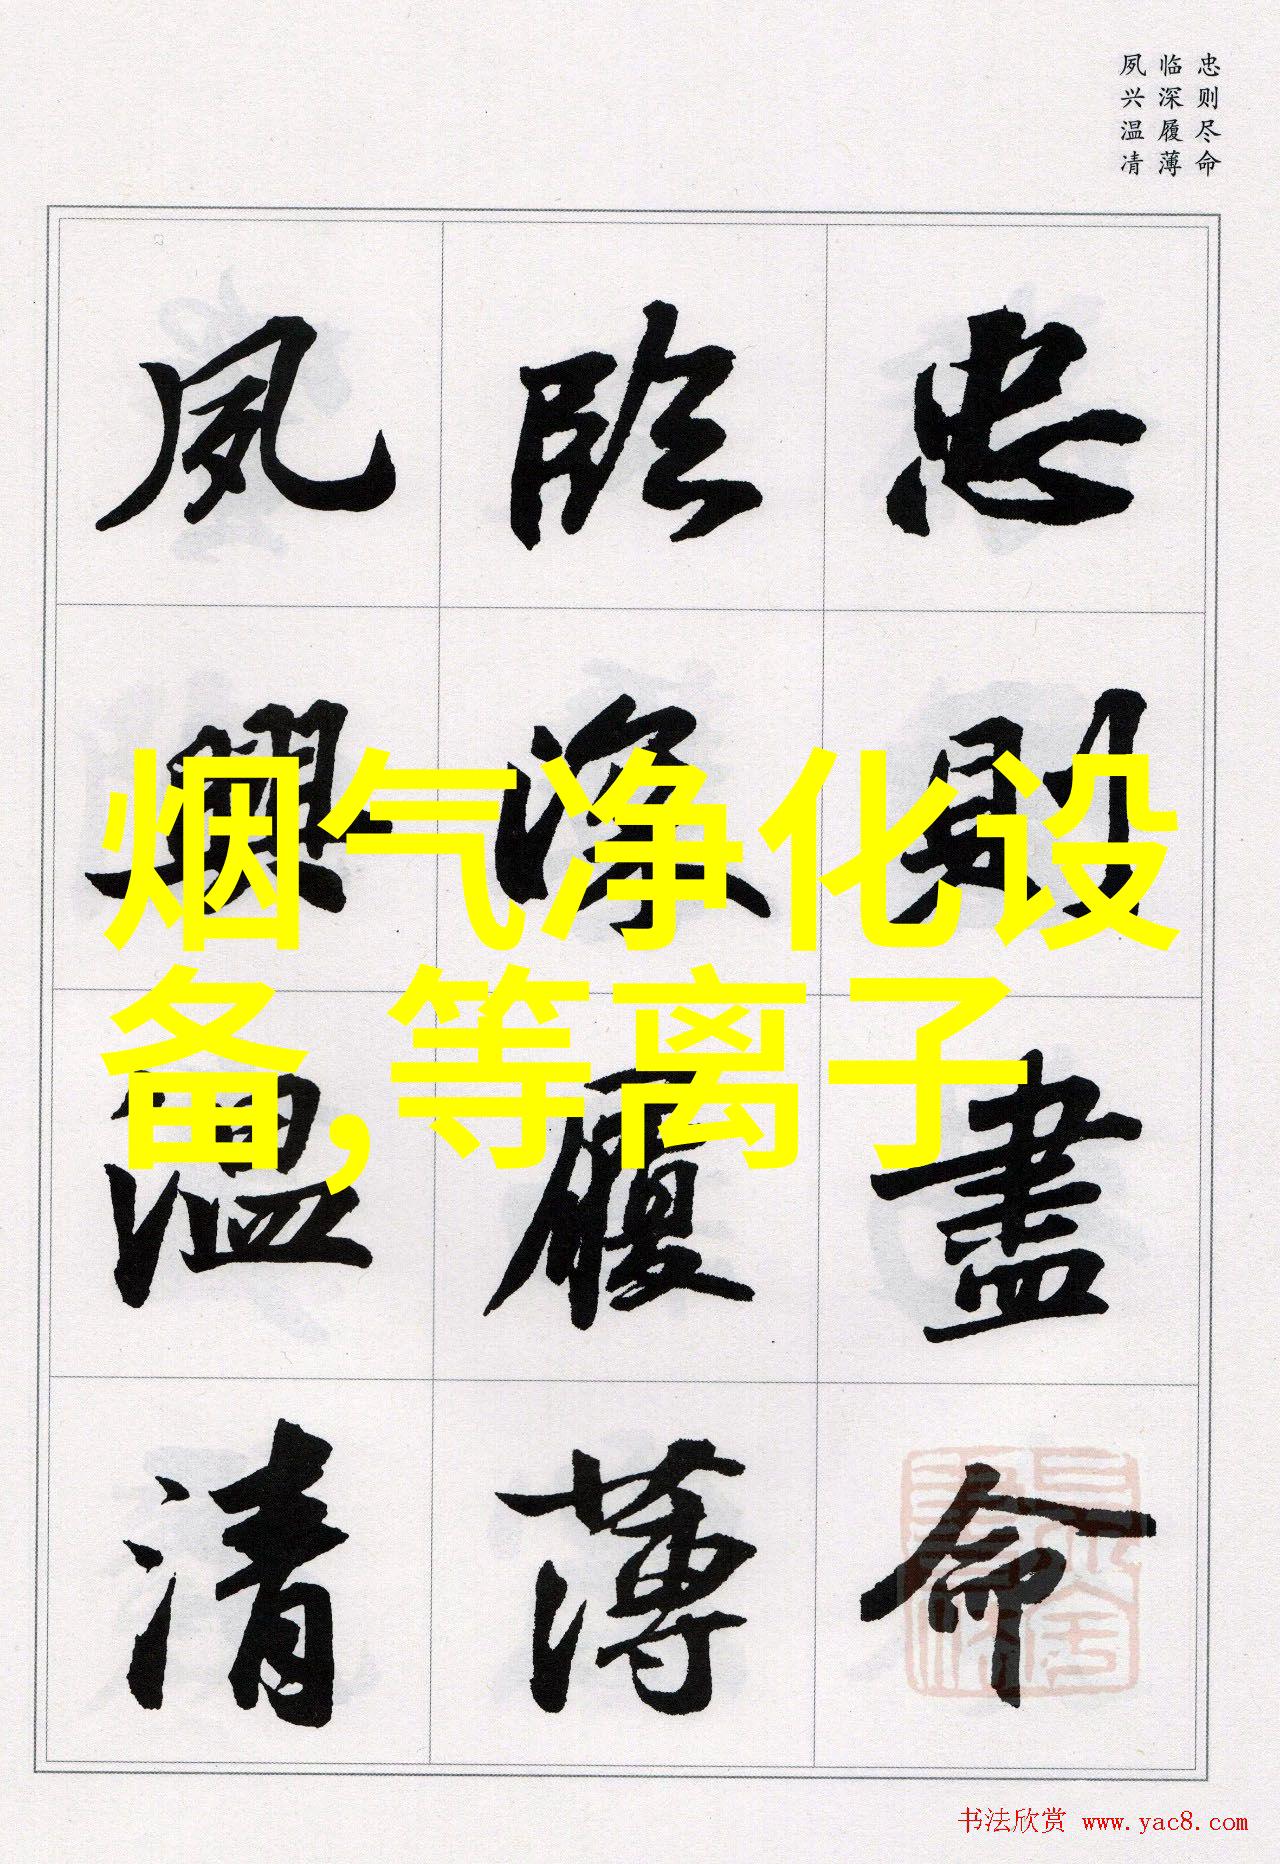 忠则尽命
临深履薄
夙兴温凊
忠則盡命
臨深履薄
夙興温清
烟气净化设
备,等离子
书法欣赏 www.yac8.com